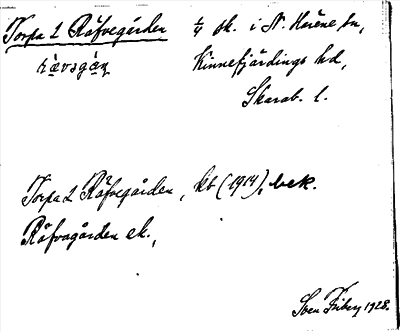 Torpa 2 Räfvegården 1/4 sk. i N. Härene sn,
rä̀vsgàn̥ Kinnefjärdings hd,
Skarab. l.
Torpa 2 Räfvegården, kb (1914), bek.
Räfvagården ek.,
Sven Friberg 1928.